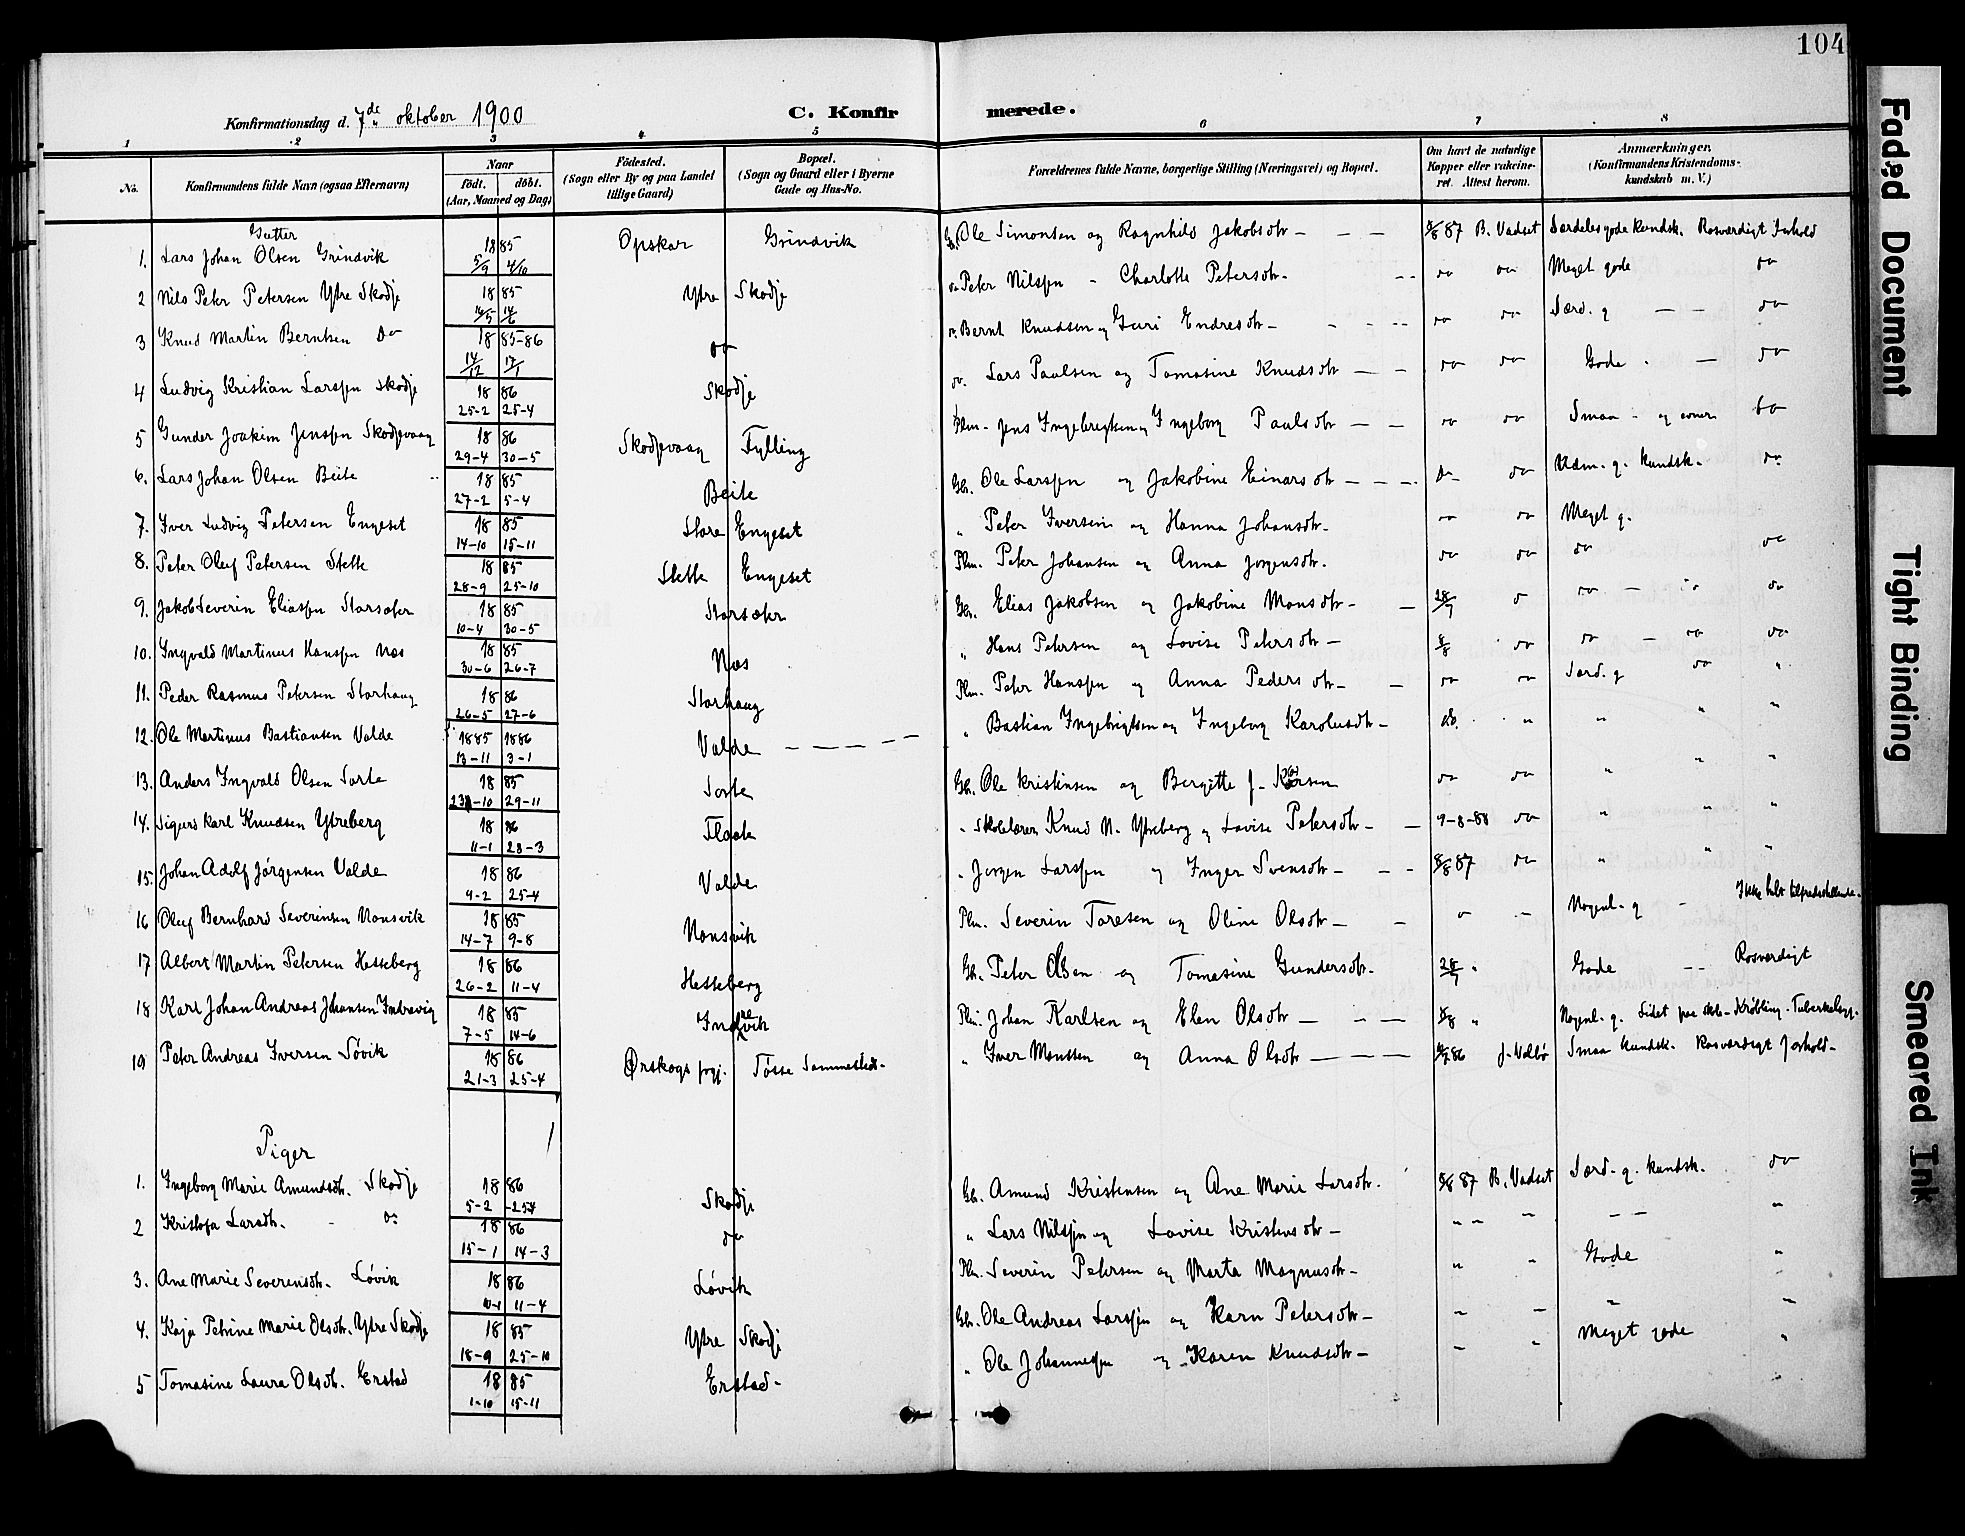 104
Konfirmationsdag d. 7de oktober 1900
C. Konfirmerede.
1 2 3 4 5 6 7 8
No. Konfirmandens fulde Navn (ogsaa Efternavn) Naar födt. döbt. (Aar, Maaned og Dag) Födested. (Sogn eller By og paa Landet tillige Gaard) Bopæl. (Sogn og Gaard eller i Byerne Gade og Hus-No. Forældrenes fulde Navne, borgerlige Stilling (Næringsvei) og Bopæl. Om havt de naturlige Kopper eller vakcineret. Attest herom. Anmærkninger. (Konfirmandens Kristendomskundskab m. V.)
Gutter
1. Lars Johan Olsen Grindvik 1885 5/9 4/10 Opskar Grindvik Gb. Ole Simonsen og Ragnhild Jakobsdtr - - - 8/8 87 B. Vadset Særdeles gode kundsk. Rosværdigt Forhold
2 Nils Peter Petersen Ytre Skodje 1885 Ytre Skodje do Peter Nilssen - Charlotte Petersdtr. -- do do Meget gode do
3 Knud Martin Berntsen Do 1885-86 14/12 17/1 do do. Bernt Knudsen og Guri Endresdtr - - - -- do do Særd. g — — do
4 Ludvig Kristian Larssen Skodje 1886 25-2 25-4 Skodje do. Lars Paulsen og Tomasine Knudsdtr — — do do Gode - — do
5 Gunder Joakim Jenssen Skodjevaag 1886 29-4 30-5 Skodjevaag Fylling Plm- Jens Ingebrigtsen og Ingeborg Paulsdtr — — do do Smaa - og evner do
6. Lars Johan Olsen Beite 1885 27-2 5-4 Beite Gb. Ole Larssen og Jakobine Einarsdtr — — —. do do Udm. g. kundsk. do
7. Iver Ludvig Petersen Engeset 1885 14-10 15-11 Store Engeset " Peter Iversen og Hanna Johansdtr. do do Meget g.
8. Peter Oluf Petersen Slette 1885 28-9 25-10 Slette Engeset Plm. Peter Johansen og Anna Jorgensdtr. do do do do
9. Jakob Severin Eliassen Storsæter 1885 10-4 30-5 Storsæter Gb. Elias Jakobsen og Jakobine Monsdtr - — 28/7 do do — do do
10. Ingvald Martinus Hanssen Næs 1885 30-6 26-7 Næs " Hans Petersen og Lovise Petersdtr — 8/8 do do — do do
11. Peder Rasmus Petersen Storhaug 1886 26-5 27-6 Storhaug Plm. Peter Hanssen og Anna Pedersdtr — — do do Særd. g do "
12. Ole Martinus Bastiansen Valde 1885 1886 13-11 3-1 Valde — — — — — " Bastian Ingebrigtsen og Ingeborg Karolusdtr - do. " " " "
13. Anders Ingvald Olsen Sorte 1885 29-11 Sorte Gb. Ole Kristinsen og Bergitte J- do do " " "
14. Sigurd Karl Knudsen Ytreberg 1886 11-1 28-3 Flaate - Skolelærer Knud N. Ytreberg og Lovise Petersdtr - — 9-8-88 do " " "
15. Johan Adolf Jørgensen Valde 1886 9-2 25-4 Valde - Jorgen Larssen og Inger Svensdtr — - - 8/8 87 do " " "
16 Oluf Bernhard Severinsen Nonsvik 1885 14-7 9-8 Nonsvik Plm. Severin Toresen og Oline Olsdtr — — Nogenl. g - Ikke helt tilfredsstillende-
17 Albert Martin Petersen Hesseberg 1886 26-2 11-4 Hesseberg Gb. Peter Olsen og Tomasine Gundersdtr. 28/7 " Gode -- Rosværdigt
18 Karl Johan Andreas Johansen Indrevig 1885 7-5 14-6 Indrevik Plm. Johan Karlsen og Elen Olsdtr — — — 8/8 " Nogenl. g.
19 Peter Andreas Iversen Søvik 1886 21-3 25-4 Ørskogs prgj. Tosse Sammesteds- " Iver Monssen og Anna Olsdtr — — — Smaa kundsk. Rosværdigt forhold-
Piger
1. Ingeborg Marie Amundsdtr. Skodje 1886 5-2 -25-4 Skodje Gb. Amund Kristensen og Ane Marie Larsdtr. 8/8 87 B. Vadset Særd. g. kundsk. do
2 Larsdtr. - do 1886 15-1 14-3 do " Lars Nilssen og Lovise Kristensdtr — " " " — — "
3. Ane Marie Severensdtr. Løvik 1886 11-4 Løvik Plm. Severin Petersen og Marta Magnusdtr - " " Gode "
4. Kaja Petrine Marie Olsdtr. Ytre Skodje 1885 18-9 25-10 Ytre Skodje Gb. Ole Andreas Larssen og Karn Petersdtr — " " " "
5 Tomasine Laura Olsdtr. Erstad 1885 1-10 15-11 Erstad- " Ole Johannessen og Karen Knudsdtr — " " Meget gode "
Faded Document
Tight Binding
Smeared Ink